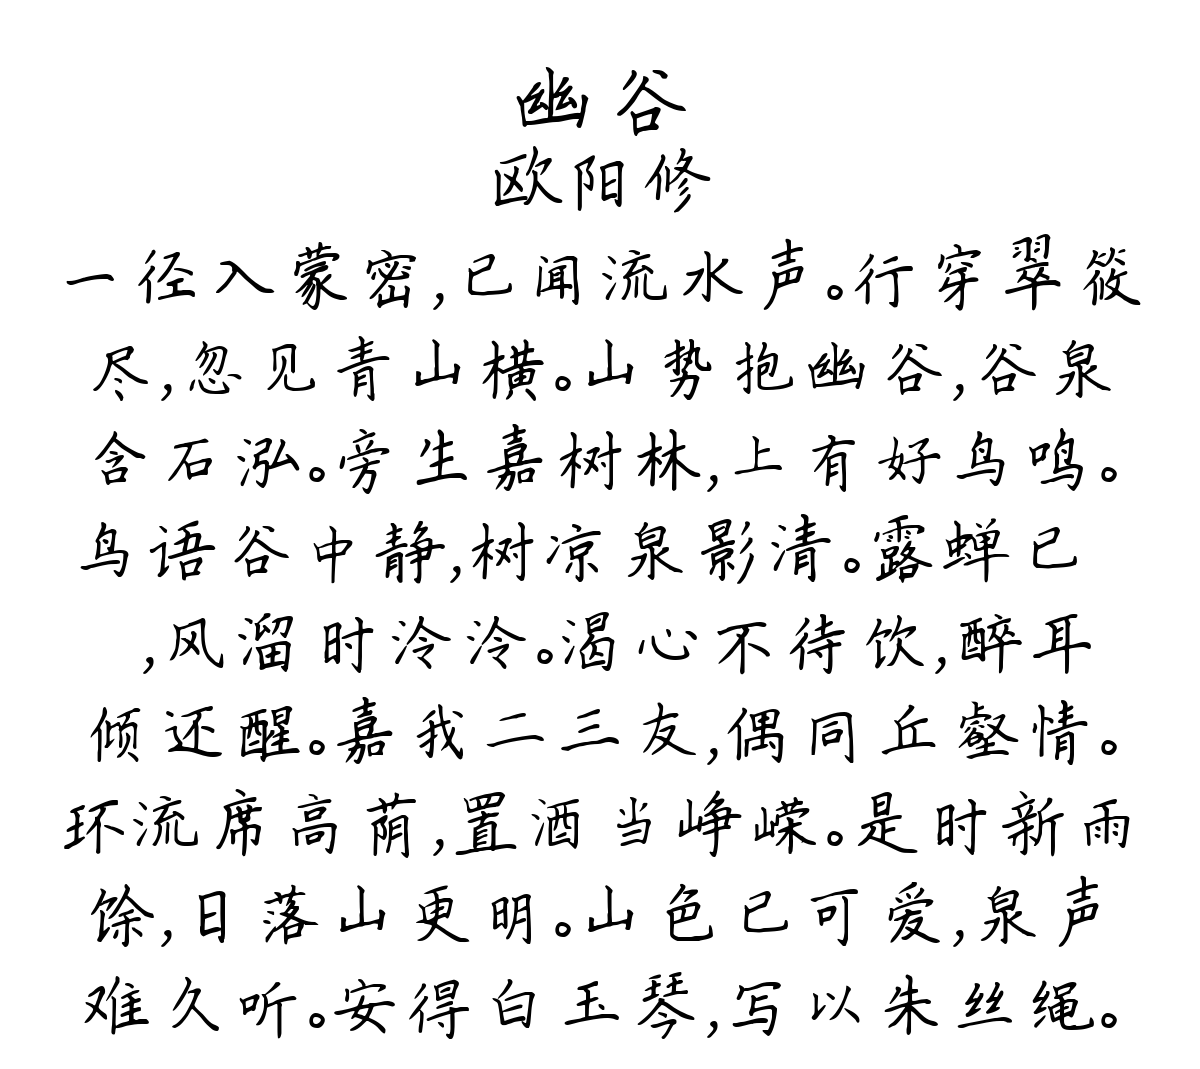 幽谷
欧阳修
一径入蒙密,已闻流水声。行穿翠筱
尽,忽见青山横。山势抱幽谷,谷泉
含石泓。旁生嘉树林,上有好鸟鸣。
鸟语谷中静,树凉泉影清。露蝉已
,风溜时泠泠。渴心不待饮,醉耳
倾还醒。嘉我二三友,偶同丘壑情。
环流席高荫,置酒当峥嵘。是时新雨
馀,日落山更明。山色已可爱,泉声
难久听。安得白玉琴,写以朱丝绳。